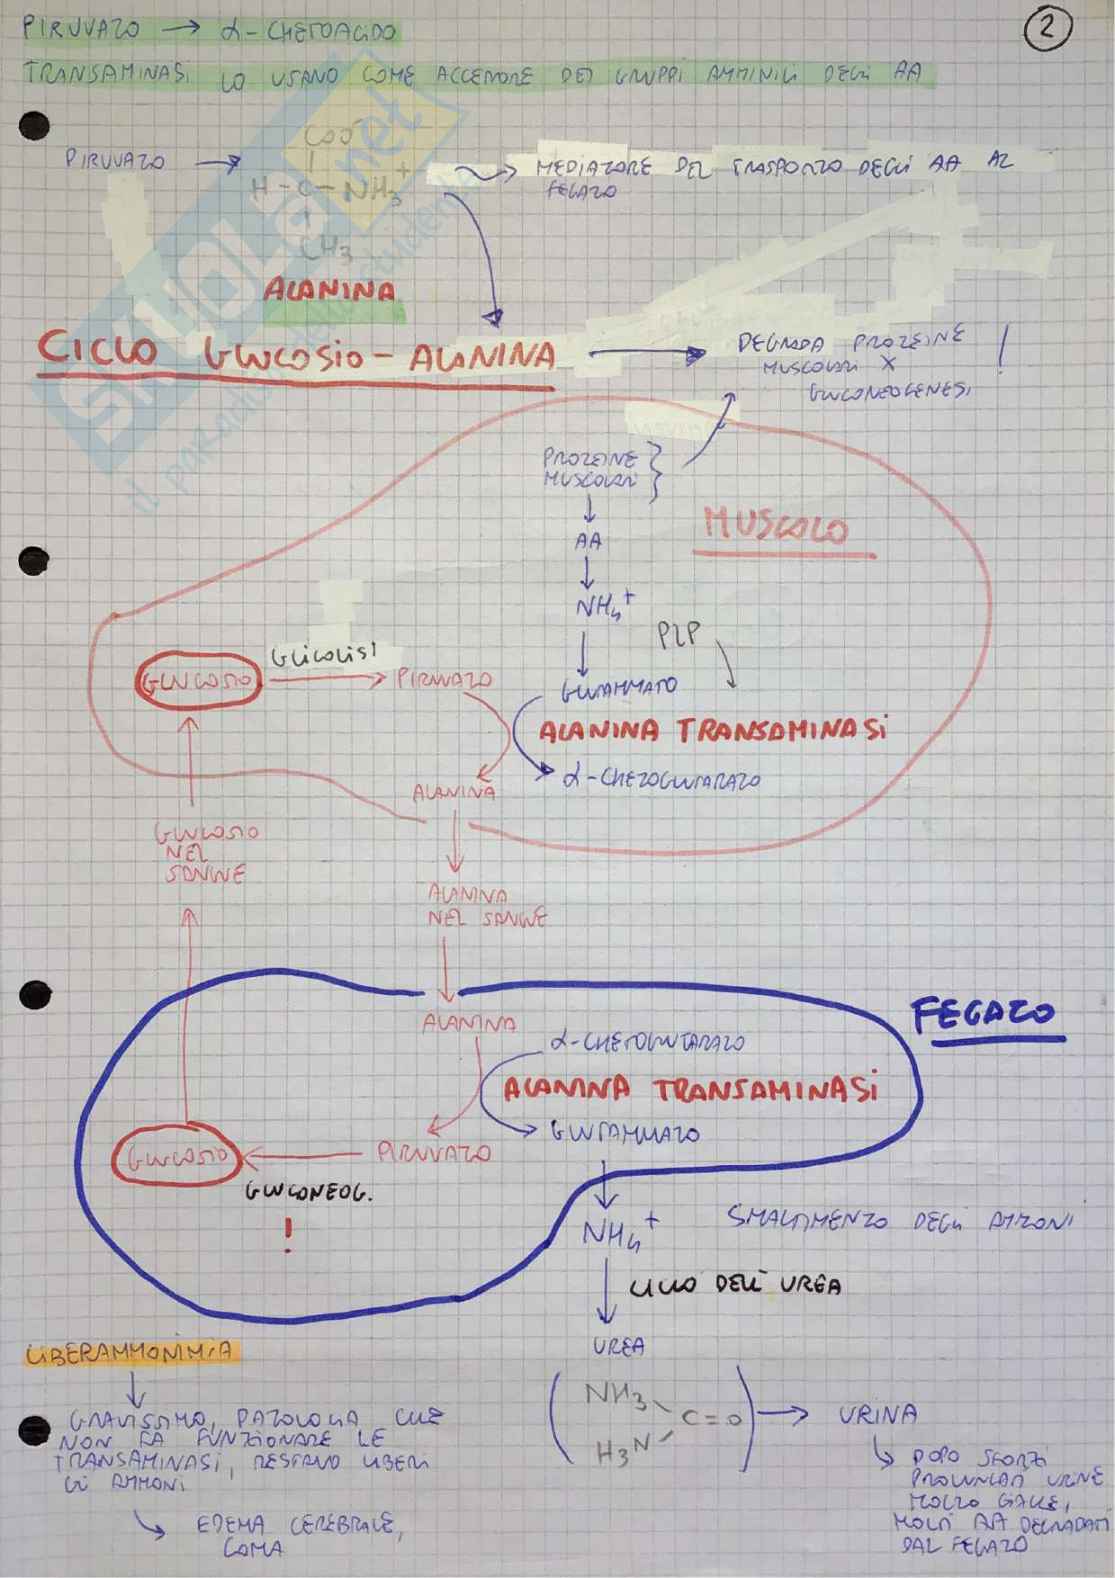 2
PIRUVATO → α-CHETOACIDO
TRANSAMINASI LO USANO COME ACCETTORE DEI GRUPPI AMMINICI DEGLI AA
PIRUVATO →
COO⁻
H-C-NH3⁺
CH3
ALANINA
MEDIATORE DEL TRASPORTO DEGLI AA AL
FEGATO
CICLO GLUCOSIO-ALANINA
DEGRADA PROTEINE
MUSCOLARI X
GLUCONEOGENESI
!
PROTEINE
MUSCOLARI
MUSCOLO
AA
NH4⁺
PLP
GLUCOSIO
GLICOLISI
PIRUVATO
GLUTAMMATO
ALANINA TRANSAMINASI
α-CHETOGLUTARATO
ALANINA
GLUCOSIO
NEL
SANGUE
ALANINA
NEL SANGUE
FEGATO
ALANINA
α-CHETOGLUTARATO
ALANINA TRANSAMINASI
GLUTAMMATO
GLUCOSIO
PIRUVATO
GLUCONEOG.
!
NH4⁺
SMALTIMENTO DEGLI AMMONI
CICLO DELL'UREA
UREA
NH3
C=O
H3N
→ URINA
DOPO SFORZI
PROLUNGATI URINE
MOLTO GIALLE,
MOLTI AA DEGRADATI
DAL FEGATO
GRAVISSIMO, PATOLOGIA CHE
NON FA FUNZIONARE LE
TRANSAMINASI, RESTANO LIBERI
GLI AMMONI
EDEMA CEREBRALE,
COMA
SKUOLA.net